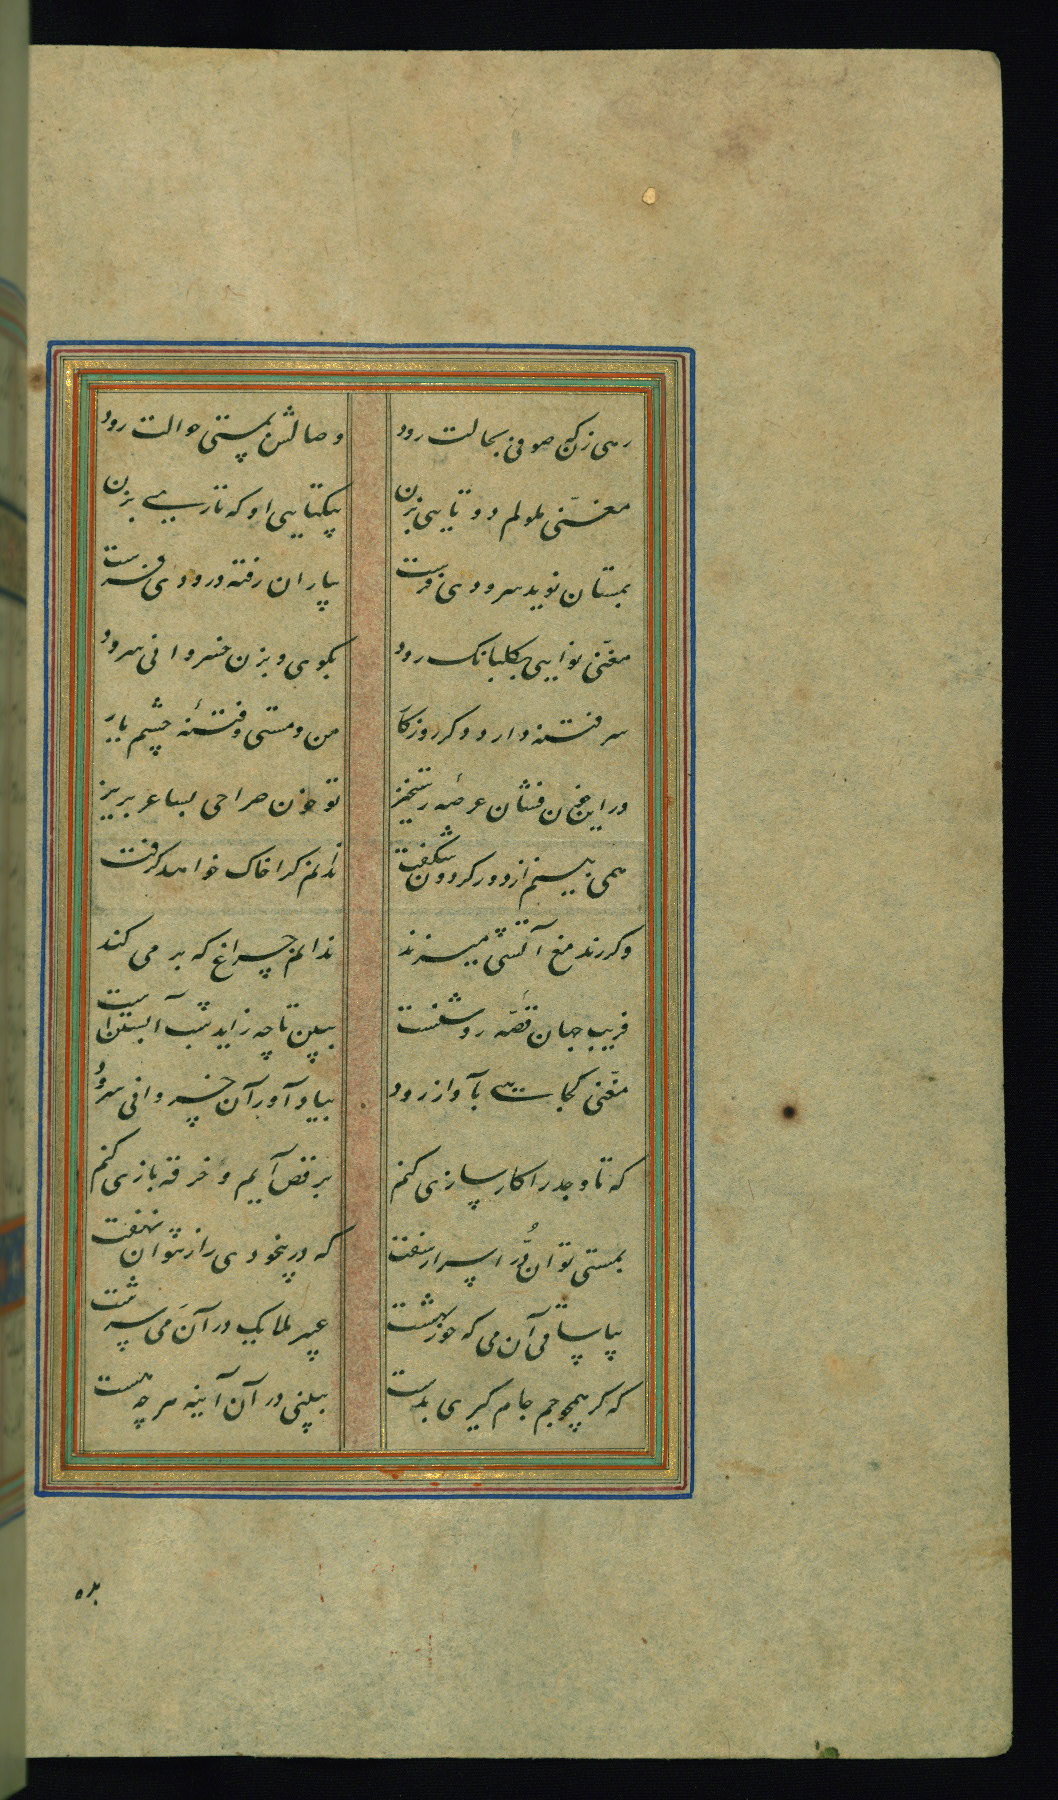 رهی زن که صوفی بحالت رود وصالش بمستی حوالت رود
مغنّی ملولم دو تایی بزن بیکتایی او که تایی بزن
بمستان نوید سرودی فرست بیاران رفته درودی فرست
مغنّی نوایی بگلبانک رود بگوی و بزن خسروانی سرود
سر فتنه دارد دکر روزکار من و مستی و فتنهٔ چشم یار
در این خون فشان عرصهٔ رستخیز تو خون صراحی بساغر بریز
همی بینم از دور کردون شکفت ندانم کرا خاک خواهد کرفت
وکر رند مغ آتشی میزند ندانم چراغ که بر می کند
فریب جهان قصّهٔ روشنست ببین تا چه زاید شب آبستن است
مغنّی کجایی بآواز رود بیاد آور آن خسروانی سرود
که تا وجد را کارسازی کنم برقص آیم و خرقه بازی کنم
بمستی توان دُرّ اسرار سفت که در بیخودی راز نتوان نهفت
بیا ساقی آن می که حور بهشت عبیر ملایک در آن می سرشت
که کر همچو جم جام کیری بدست ببینی در آن آینه هر چه هست
بده